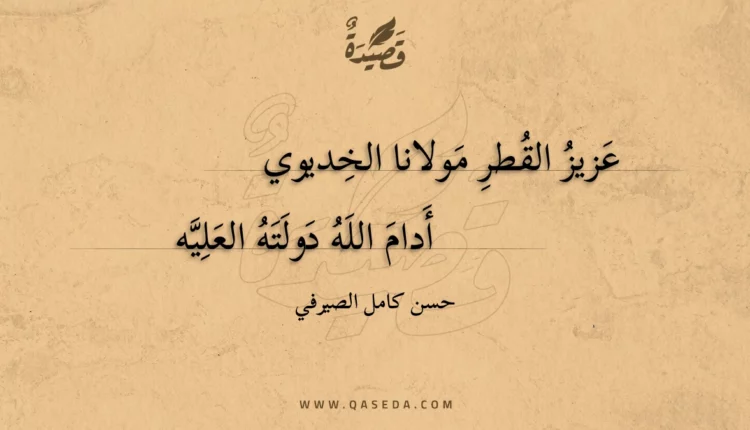 قَصِيْدَةٌ
عَزيزُ القُطرِ مَولانا الخِديوي
أَدامَ اللَهُ دَولَتَهُ العَلِيَّه
حسن كامل الصيرفي
WWW.QASEDA.COM